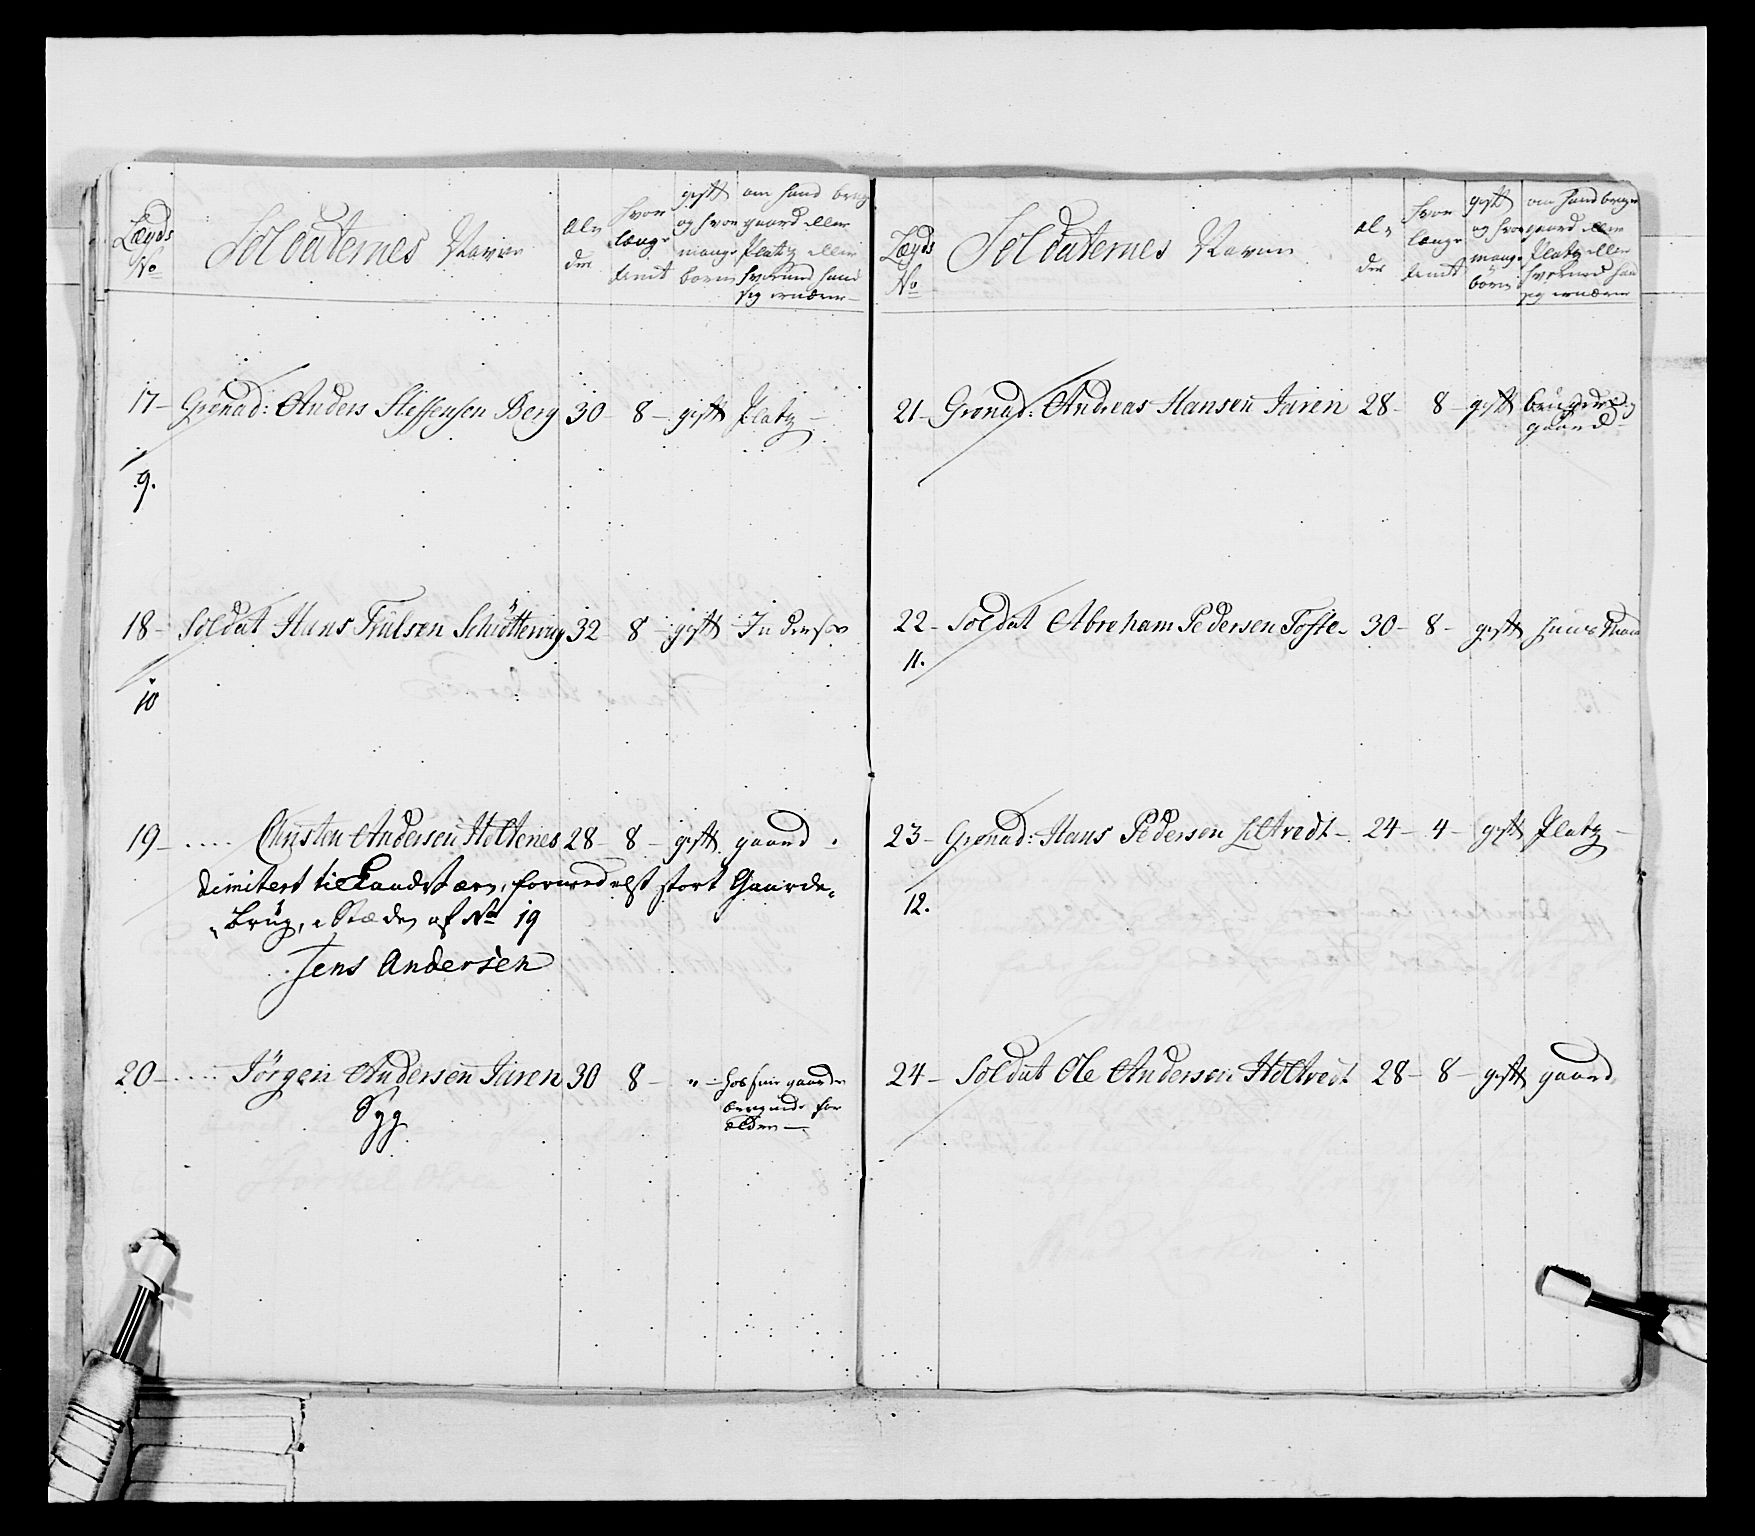 Lægds No
Soldaternes Navne
Alder
hvor længe tient
gift og hvor mange børn
om hand bruger gaard eller Platz eller hvormed hand sig ernærer
17 - Grenad: Anders Steffensen Berg 30 - 8 - gift Platz -
9.
18 - Soldat Hans Trulsen 32 - 8 - gift Inderst
10
19 - .... Christen Andersen Holtenes 28 - 8 - gift gaard
dimitert til Landværn, formedelst stort Gaards-
Brug, i Stæden af No 19
Jens Andersen
20 - .... Jörgen Andersen Jaren 30 8 - " - hos sine gaard
Syg
brugende for
ældre -
Lægds No
Soldaternes Navne
Alder
hvor længe tient
gift og hvor mange børn
om hand bruger gaard eller Platz eller hvormed hand sig ernærer
21 - Grenad: Andreas Hansen Jaren 28 - 8 - gift bruger
gaard
22 - Soldat Abraham Pedersen Tofte - 30 - 8 - gift huusmand
11.
23 - Grenad: Hans Pedersen Holtvedt - 24 - 4 - gift Platz -
12.
24 - Soldat Ole Andersen Holtvedt 28 - 8 - gift gaard